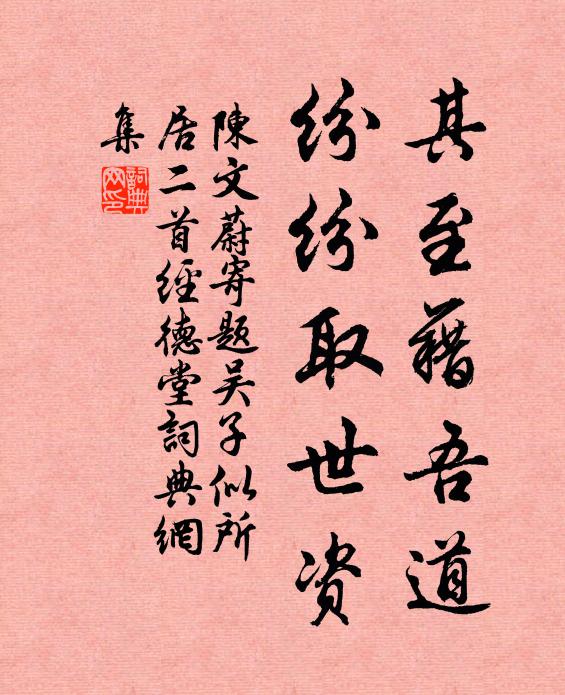 其至藉吾道
紛紛取世资
陳文蔚寄題吴子似所
居二首經德堂詞典網
集
詞典
网印